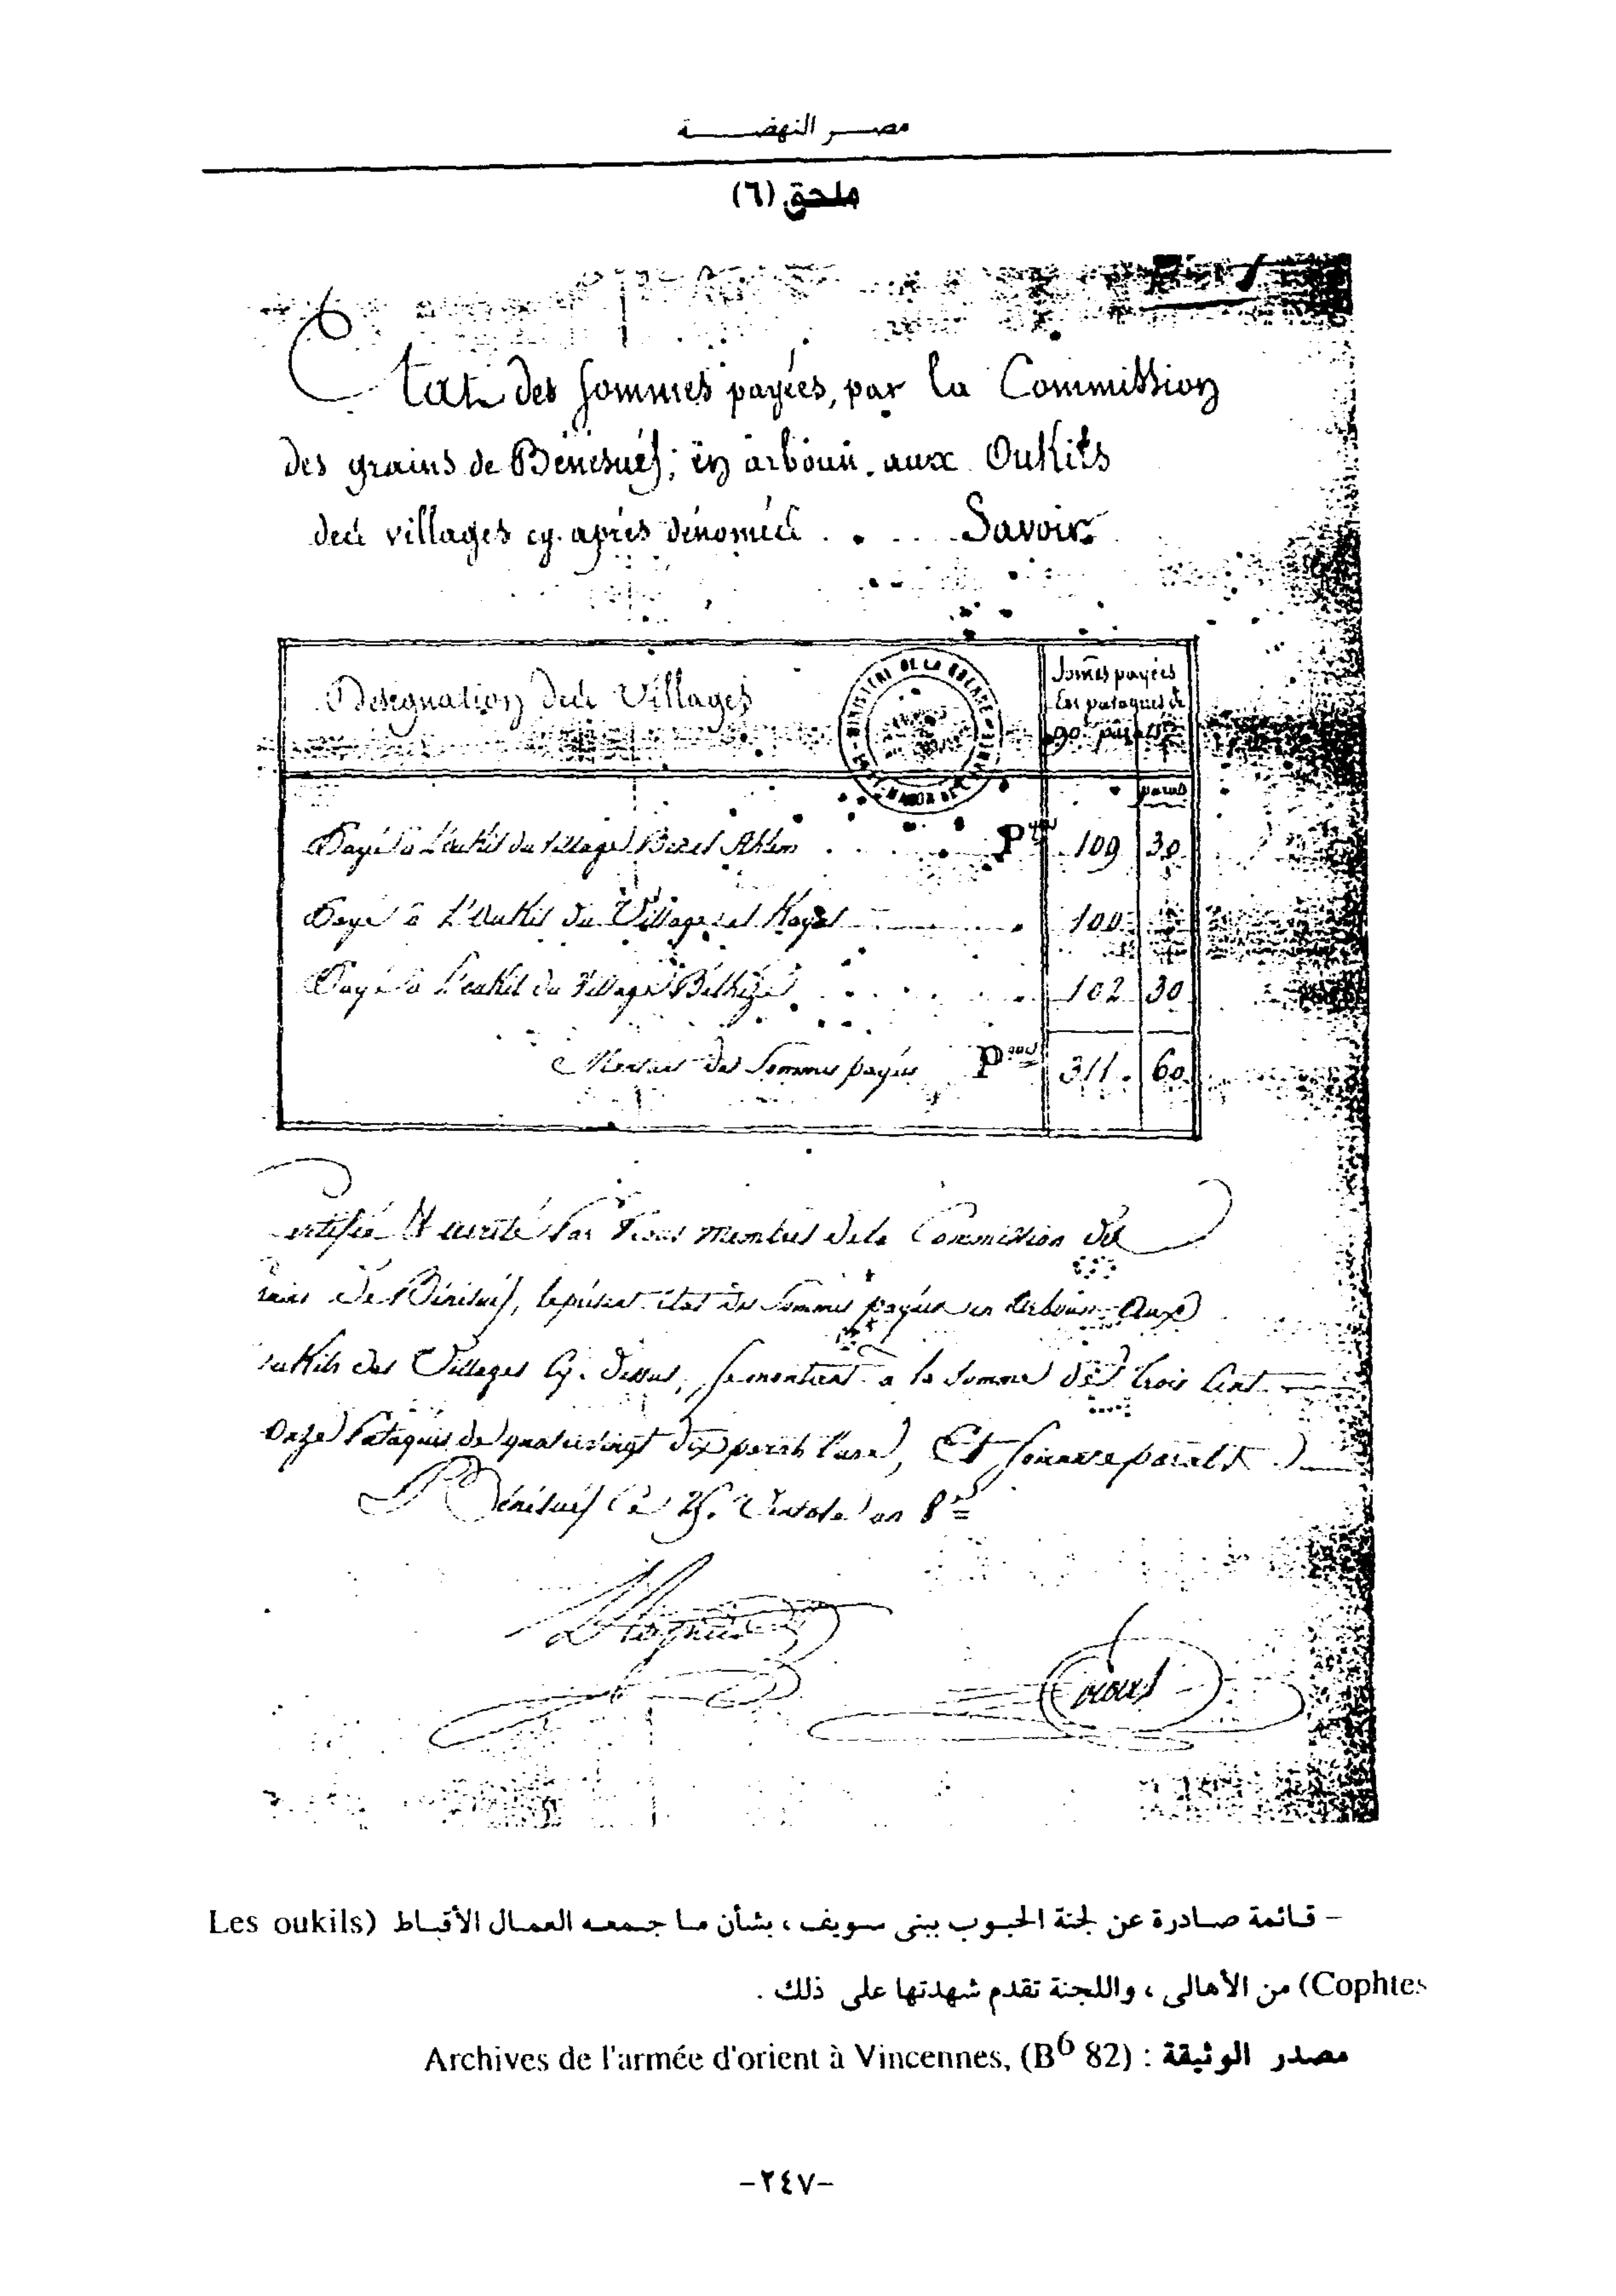 مصر النهضة
ملحق (٦)
Etat des sommes payées, par la Commission
des grains de Bénésuef; en arboun. aux Oukils
des villages cy. après dénomés . . . . Savoir.
Désignation des Villages
Somēs payées
En pataques de
90 parats
MINISTERE DE LA GUERRE
parats
Payé à L'oukil du Village . . . . P 109 30
Payé à L'oukil du Village el . . . . 100
Payé à L'oukil du Village . . . . 102 30
des Sommes payées P 311. 60
ertifié Par Nous membres de la Commission des
rains de Bénésuef, le présent état des Sommes payées en Arboun aux
oukils des Villages Cy. dessus, se montant à la Somme de trois Cent
Onze Pataques de quatrevingt dix parats l'une, Et soixante parats
A Bénésuef Le 25. Ventose an 8
– قائمة صادرة عن لجنة الحبوب ببنى سويف ، بشأن ما جمعه العمال الأقباط (Les oukils
Cophtes) من الأهالى ، واللجنة تقدم شهدتها على ذلك .
مصدر الوثيقة : Archives de l'armée d'orient à Vincennes, (B6 82)
-٢٤٧-